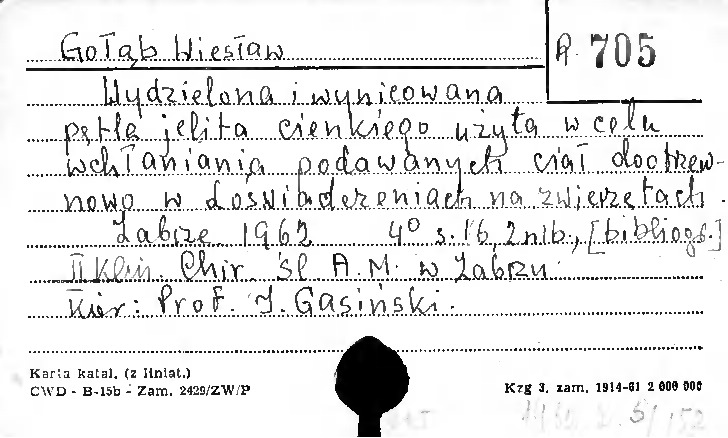 Gołąb Wiesław
R 705
Wydzielona i wynicowana
pętla jelita cienkiego użyta w celu
wchłaniania podawanych ciał dootrzew-
nowo w doświadczeniach na zwierzętach.
Zabrze 1962 4° s. 16, 2 nlb., [bibliogr.]
II Klin. Chir. Śl A.M. w Zabrzu
Kier: Prof. J. Gasiński.
Karta katal. (z liniat.)
CWD - B-15b - Zam. 2429/ZW/P
Kzg 3, zam. 1914-61 2 000 000
5/152